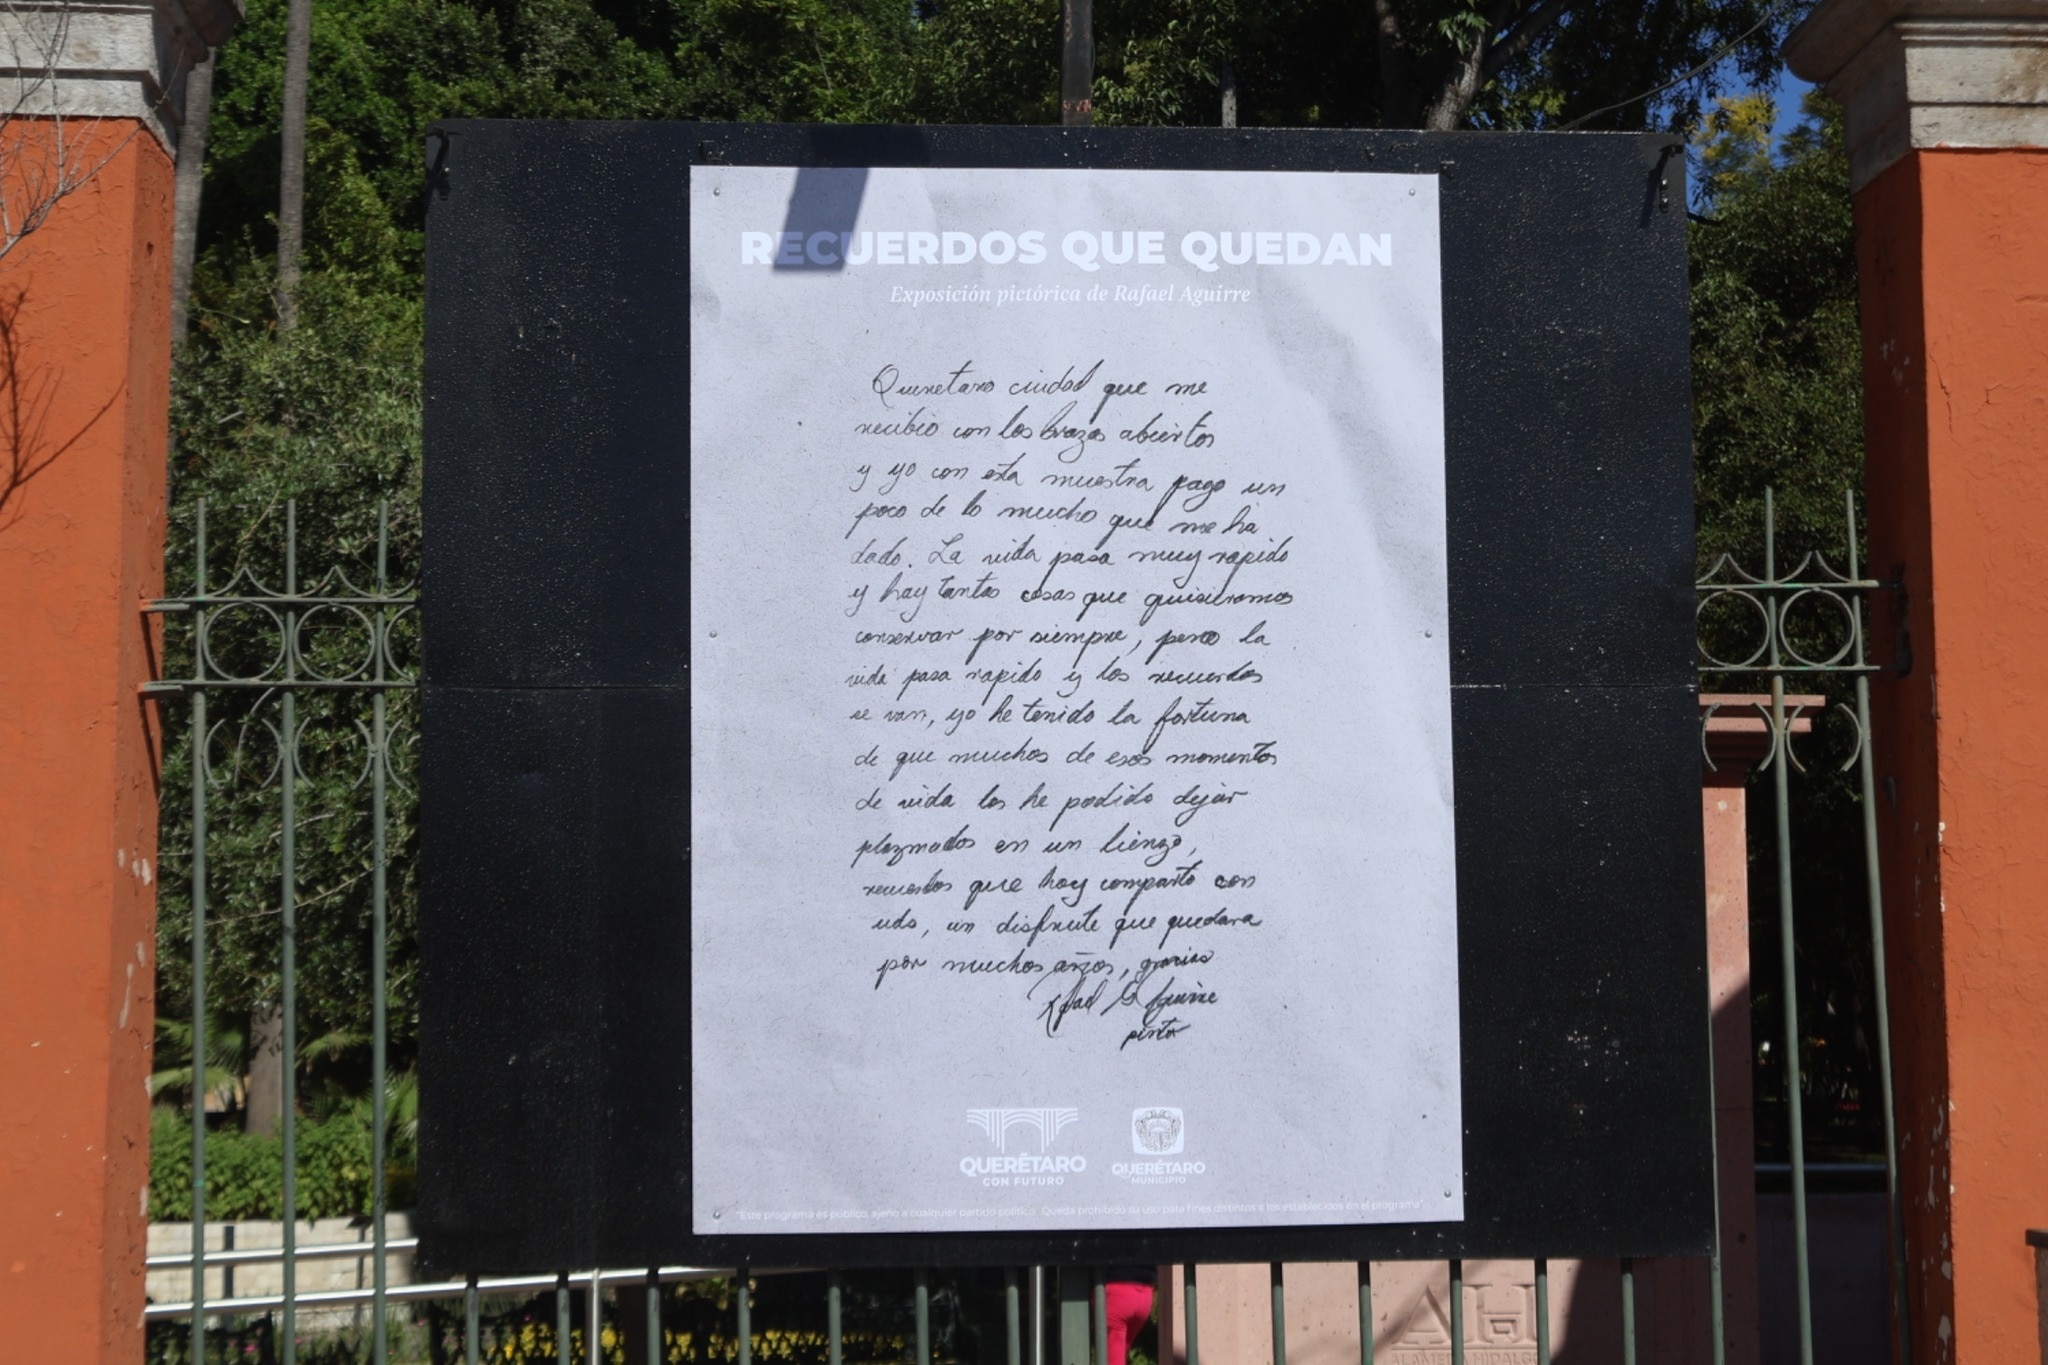 RECUERDOS QUE QUEDAN
Exposición pictórica de Rafael Aguirre
Queretaro ciudad que me
recibio con los brazos abiertos
y yo con esta muestra pago un
poco de lo mucho que me ha
dado. La vida pasa muy rapido
y hay tantas cosas que quisieramos
conservar por siempre, pero la
vida pasa rapido y los recuerdos
se van, yo he tenido la fortuna
de que muchos de esos momentos
de vida los he podido dejar
plazmados en un lienzo,
recuerdos que hoy comparto con
uds, un disfrute que quedara
por muchos años, gracias
Rafael G Aguirre
pintor
QUERÉTARO
CON FUTURO
QUERÉTARO
MUNICIPIO
"Este programa es público, ajeno a cualquier partido político. Queda prohibido su uso para fines distintos a los establecidos en el programa".
AH
ALAMEDA HIDALGO